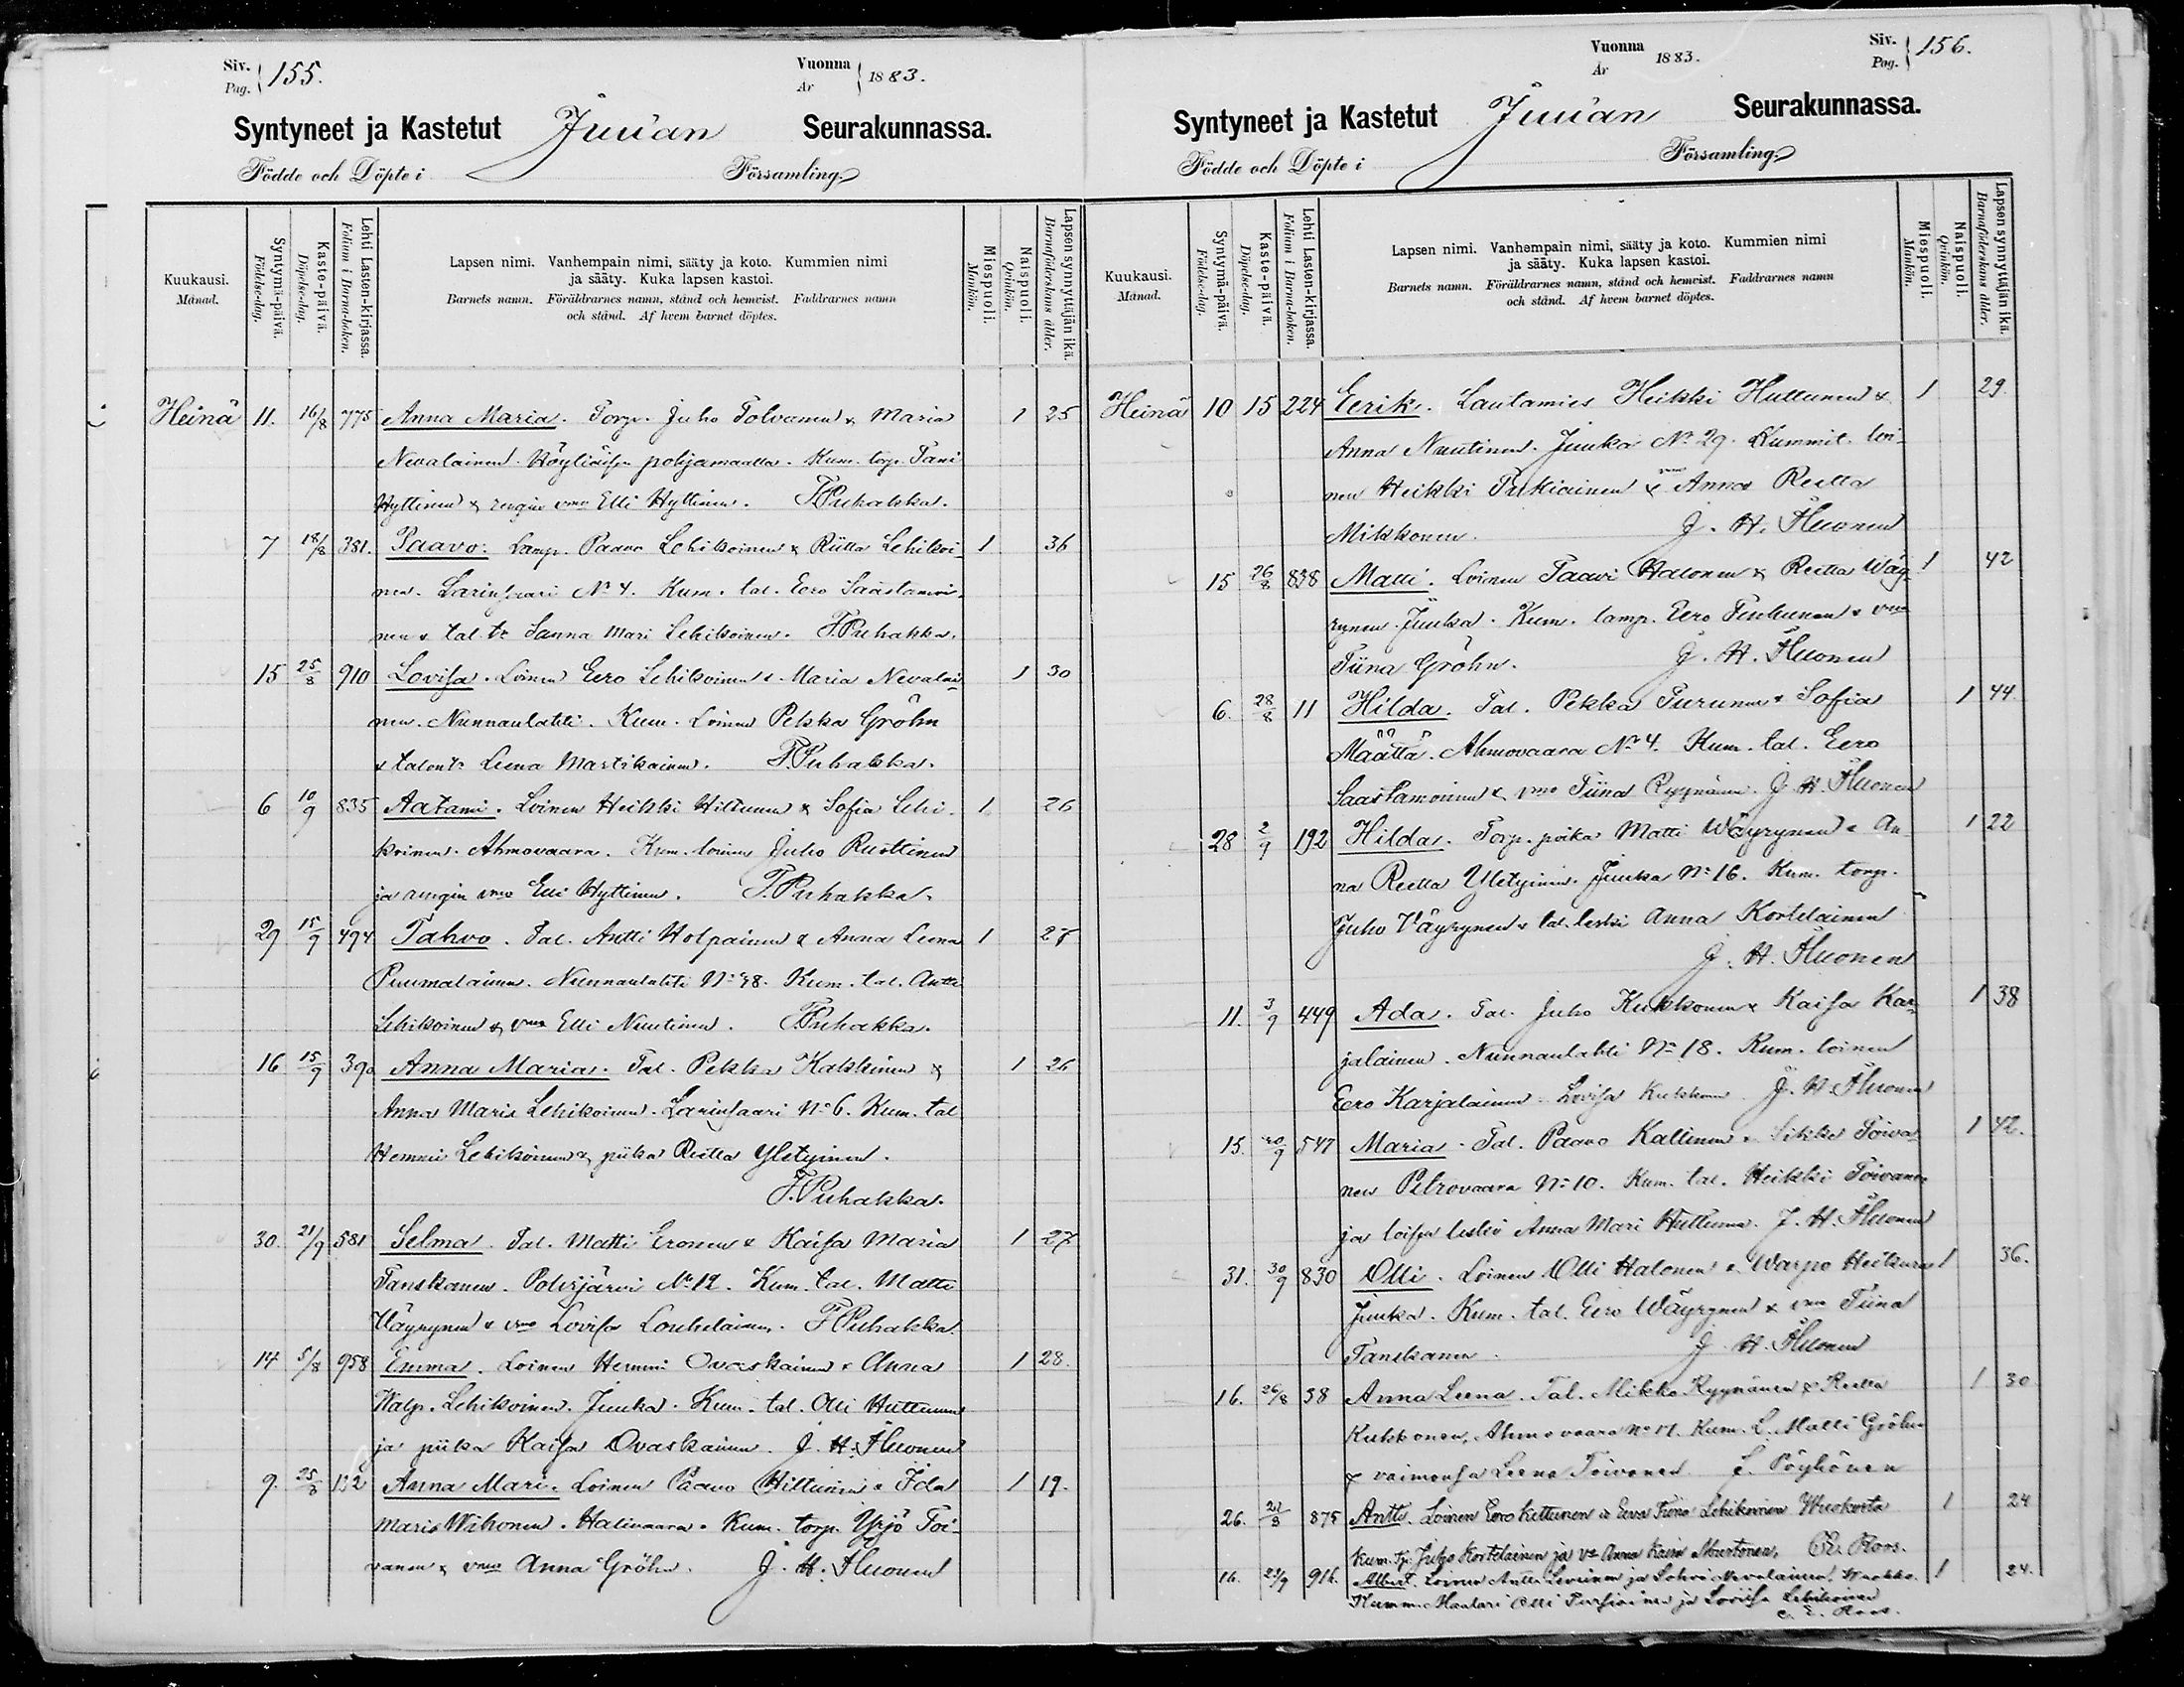 Siv. Pag. 155.
Vuonna År 1883.
Syntyneet ja Kastetut Juuan Seurakunnassa.
Födde och Döpte i Församling.
Kuukausi. Månad.
Syntymä-päivä. Födelse-dag.
Kaste-päivä. Döpelse-dag.
Lehti Lasten-kirjassa. Folium i Barna-boken.
Lapsen nimi. Vanhempain nimi, sääty ja koto. Kummien nimi
ja sääty. Kuka lapsen kastoi.
Barnets namn. Föräldrarnes namn, stånd och hemvist. Faddrarnes namn
och stånd. Af hvem barnet döptes.
Miespuoli. Mankön.
Naispuoli. Qvinkön.
Lapsensynnyttäjän ikä. Barnaföderskans ålder.
Heinä 11. 16/8 775 Anna Maria. Torp. Juho Tolvanen & Maria 1 25
Nevalainen. pohjamaalla. Kum. torp. Tani
Hyttinen & rengin vmo Elli Hyttinen. F. Puhakka.
7 18/8 381. Paavo. Lamp. Paavo Lehikoinen & Riitta Lehikoi- 1 36
nen. Larinsaari No 4. Kum. tal. Eero Saastamoi-
nen & tal. tr Sanna Mari Lehikoinen. F. Puhakka.
15 25/8 910 Lovisa. Loinen Eero Lehikoinen & Maria Nevalai- 1 30
nen. Nunnanlahti. Kum. Loinen Pekka Gröhn
& talon tr Leena Martikainen. F. Puhakka.
6 10/9 835 Aatami. Loinen Heikki Hiltunen & Sofia Lehi- 1 26
koinen. Ahmovaara. Kum. loinen Juho Ruottinen
ja rengin vmo Elli Hyttinen. F. Puhakka.
29 15/9 494 Tahvo. Tal. Antti Holpainen & Anna Leena 1 28
Puumalainen. Nunnanlahti No 48. Kum. tal. Antti
Lehikoinen & vmo Elli Nuutinen. F. Puhakka.
16 15/9 390 Anna Maria. Tal. Pekka Kakkinen & 1 26
Anna Maria Lehikoinen. Larinsaari No 6. Kum. tal
Hemmi Lehikoinen & piika Reetta Yletyinen.
F. Puhakka.
30. 21/9 581 Selma. Tal. Matti Eronen & Kaisa Maria 1 27
Tanskanen. Polvijärvi No 12. Kum. tal. Matti
Väyrynen & vmo Lovisa Louhelainen. F. Puhakka.
14 5/8 958 Emma. Loinen Hemmi Ovaskainen & Anna 1 28.
Walp. Lehikoinen. Juuka. Kum. tal. Olli Huttunen
ja piika Kaisa Ovaskainen. J. H. Fluonen
9. 25/8 132 Anna Mari. Loinen Paavo Hiltunen & Ida 1 19.
Maria Wihonen. Halivaara. Kum. torp. Yrjö Toi-
vanen & vmo Anna Gröhn. J. H. Fluonen
Vuonna År 1883.
Siv. Pag. 156.
Syntyneet ja Kastetut Juuan Seurakunnassa.
Födde och Döpte i Församling.
Kuukausi. Månad.
Syntymä-päivä. Födelse-dag.
Kaste-päivä. Döpelse-dag.
Lehti Lasten-kirjassa. Folium i Barna-boken.
Lapsen nimi. Vanhempain nimi, sääty ja koto. Kummien nimi
ja sääty. Kuka lapsen kastoi.
Barnets namn. Föräldrarnes namn, stånd och hemvist. Faddrarnes namn
och stånd. Af hvem barnet döptes.
Miespuoli. Mankön.
Naispuoli. Qvinkön.
Lapsensynnyttäjän ikä. Barnaföderskans ålder.
Heinä 10 15 224 Eerik. Lautamies Heikki Huttunen & 1 29.
Anna Nuutinen. Juuka No 29. Kummit. loi-
nen Heikki Turkiainen & vmo Anna Reetta
Mikkonen. J. H. Fluonen
15 26/8 838 Matti. Loinen Taavi Halonen & Reetta Wäy- 1 42
rynen. Juuka. Kum. lamp. Eero Turhunen & vmo
Tiina Gröhn. J. H. Fluonen
6. 28/8 11 Hilda. Tal. Pekka Turunen & Sofia 1 44.
Määttä. Ahmovaara No 4. Kum. tal. Eero
Saastamoinen & vmo Tiina Ryynänen. J. H. Fluonen
28 2/9 192 Hilda. Torp. poika Matti Wäyrynen & An- 1 22
na Reetta Yletyinen. Juuka No 16. Kum. torp.
Juho Väyrynen & tal. leski Anna Kortelainen
J. H. Fluonen
11. 3/9 449 Ada. Tal. Juho Kukkonen & Kaisa Kar- 1 38
jalainen. Nunnanlahti No 18. Kum. loinen
Eero Karjalainen Lovisa Kukkonen J. H. Fluonen
15. 20/9 547 Maria. Tal. Paavo Kallinen & Sikke Toiva- 1 42.
nen Petrovaara No 10. Kum. tal. Heikki Toivanen
ja loisen leski Anna Mari Huttunen. J. H. Fluonen
31. 30/9 830 Olli. Loinen Olli Halonen & Warpo Heikura 1 36.
Juuka. Kum. tal. Eero Wäyrynen & vmo Tiina
Tanskanen. J. H. Fluonen
16. 26/8 38 Anna Leena. Tal. Mikko Ryynänen & Reetta 1 30
Kukkonen, Ahmovaara No 17. Kum. L. Matti Gröhn
& vaimonsa Leena Toivonen L. Pöyhönen
26. 21/8 875 Antti. Loinen Eero Kettunen & Eeva Tiina Lehikoinen Wuokoste 1 24
Kum. Tp. Juho Kortelainen ja vo Anna Kaisa Mustonen, C. E. Roos.
16. 23/9 916. Albert. Loinen Antti Leveinen ja Sohvi Nevalainen, Wuokko. 1 24.
Kumm. Olli Tursiainen ja Loviisa Lehikoinen
C. E. Roos.